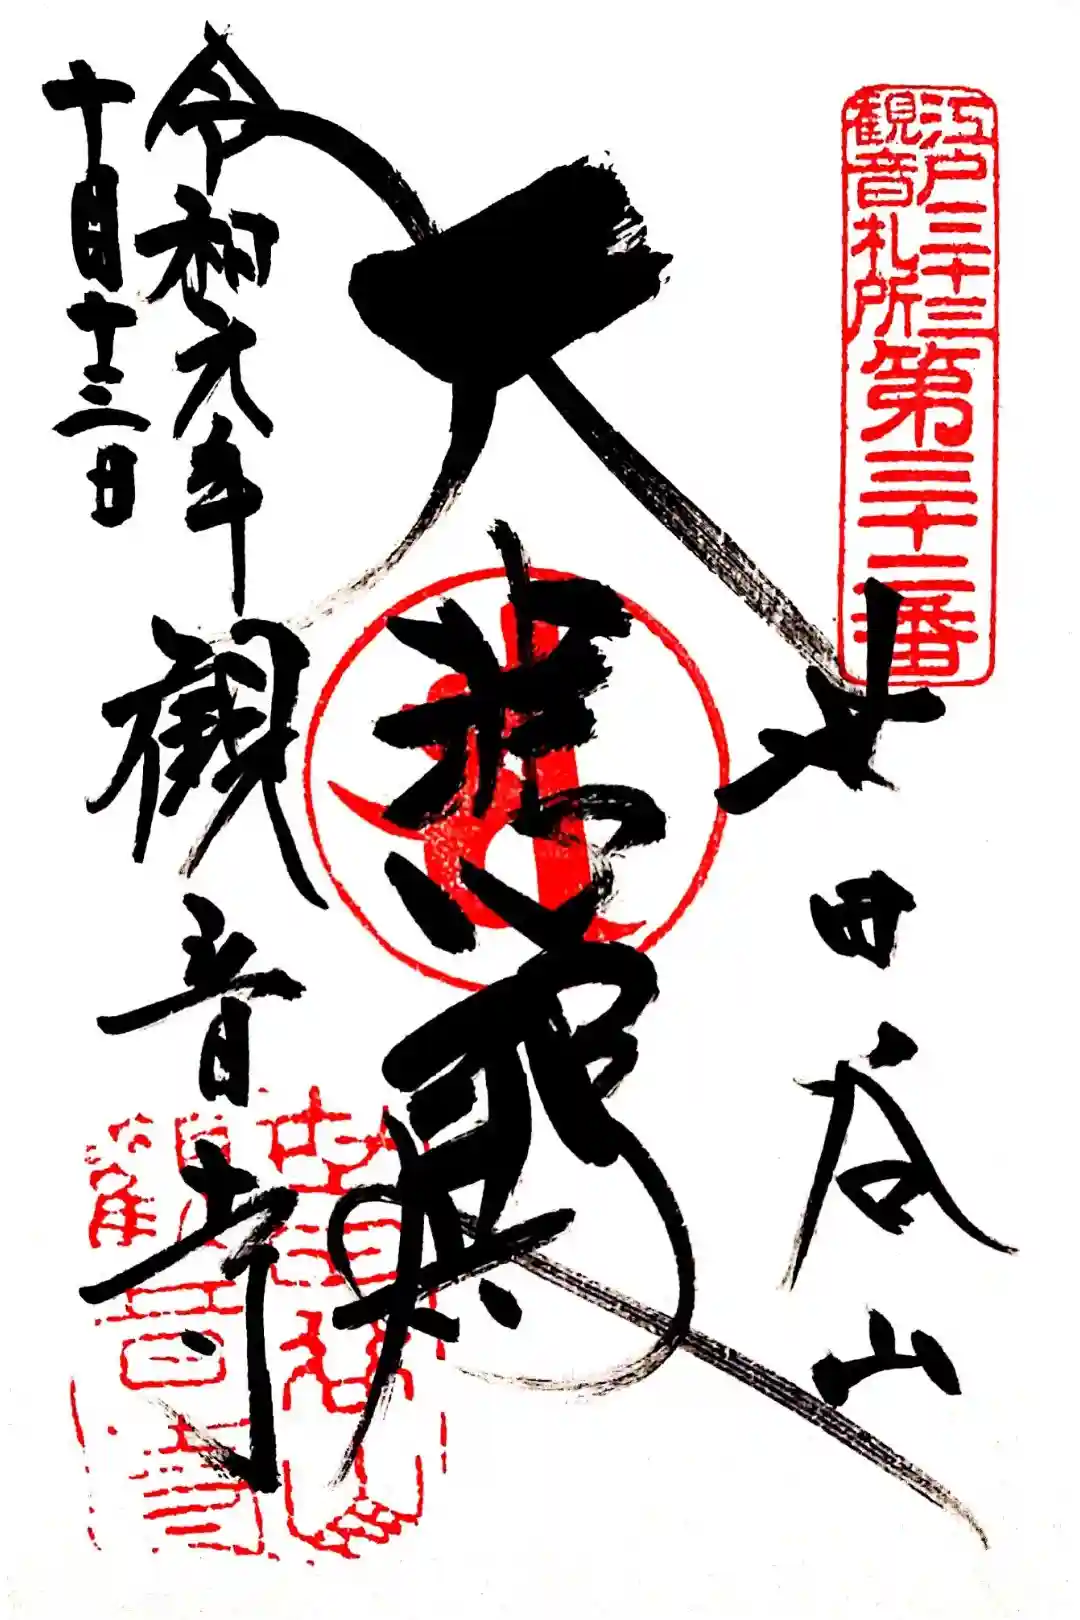 江戸三十三
観音札所
第三十二番
世田谷山
大悲殿
観音寺
令和元年
十月十三日
世田谷山
觀音寺